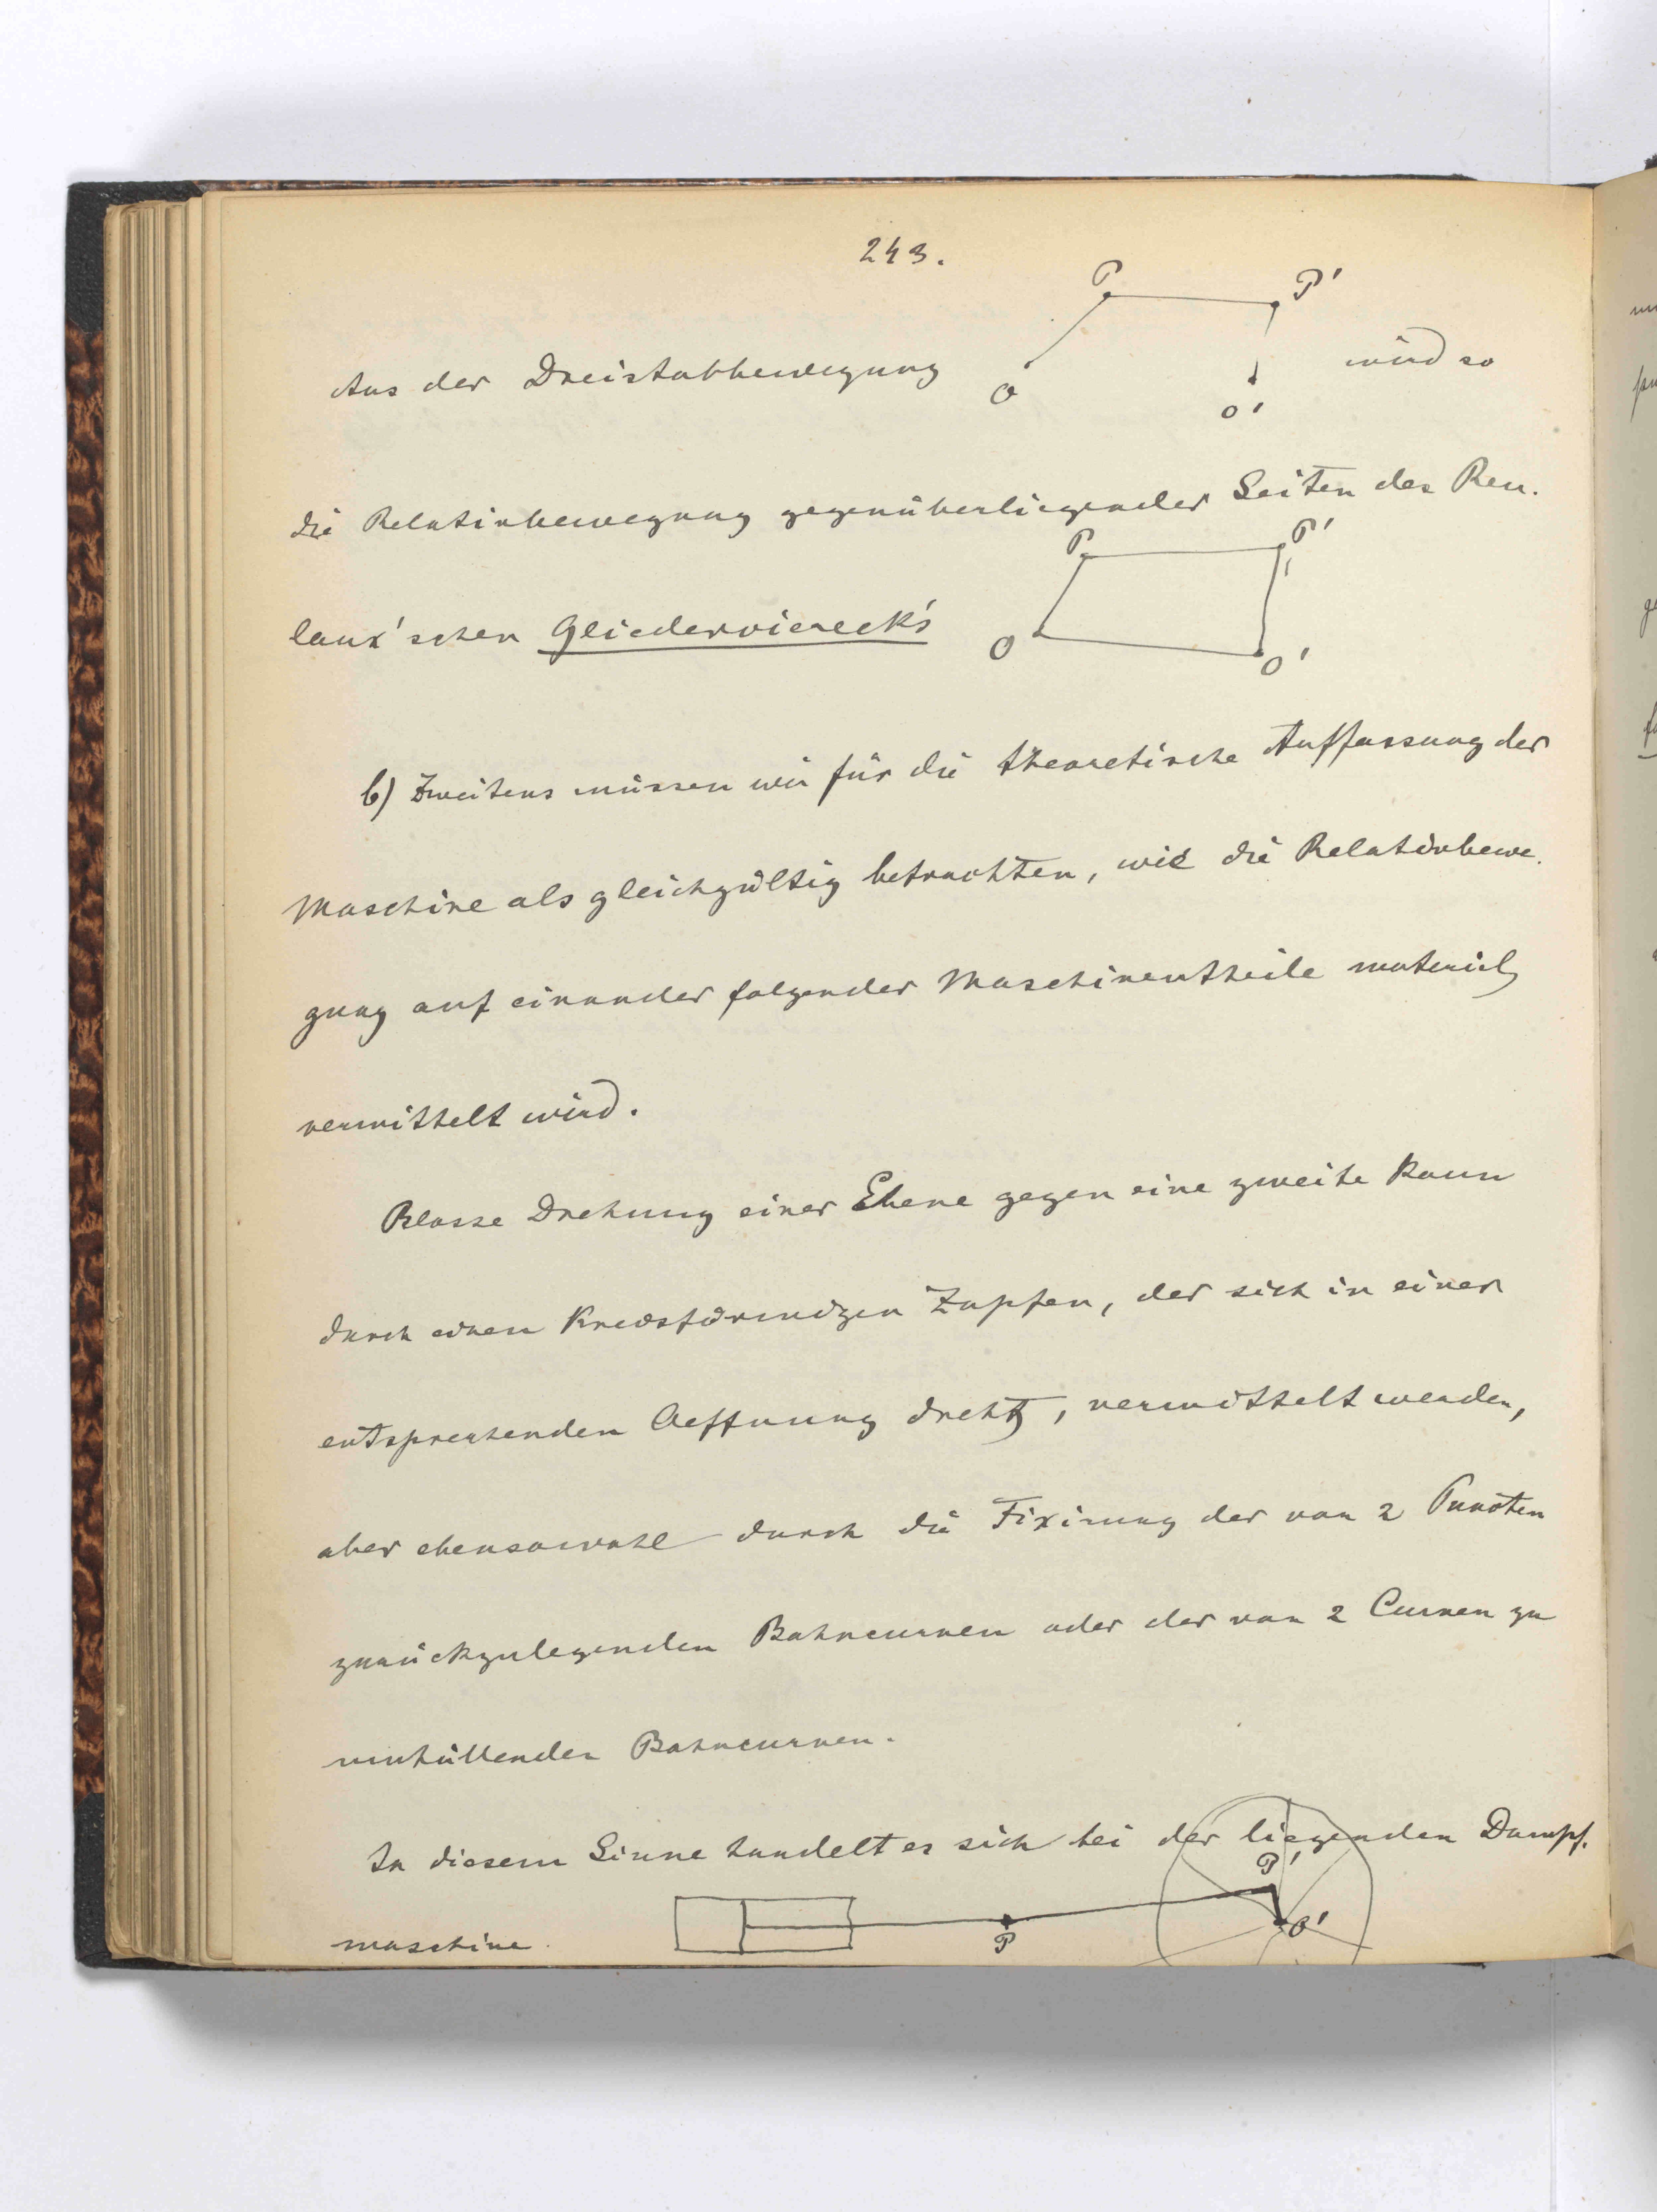 243.
P P'
Aus der Dreistabbewegung wird so
O O'
die Relativbewegung gegenüberliegender Seiten des Reu-
P P'
leaux'schen Gliedervierecks
O O'
b) Zweitens müssen wir für die theoretische Auffassung der
Maschine als gleichgültig betrachten, wie die Relativbewe-
gung auf einander folgender Maschinentheile materiell
vermittelt wird.
Blosse Drehung einer Ebene gegen eine zweite kann
durch einen kreisförmigen Zapfen, der sich in einer
entsprechenden Oeffnung dreht, vermittelt werden,
aber ebensowohl durch die Fixirung der von 2 Puncten
zurückzulegenden Bahncurven oder der von 2 Curven zu
umhüllenden Bahncurven.
In diesem Sinne handelt es sich bei der liegenden Dampf-
P'
maschine P O'